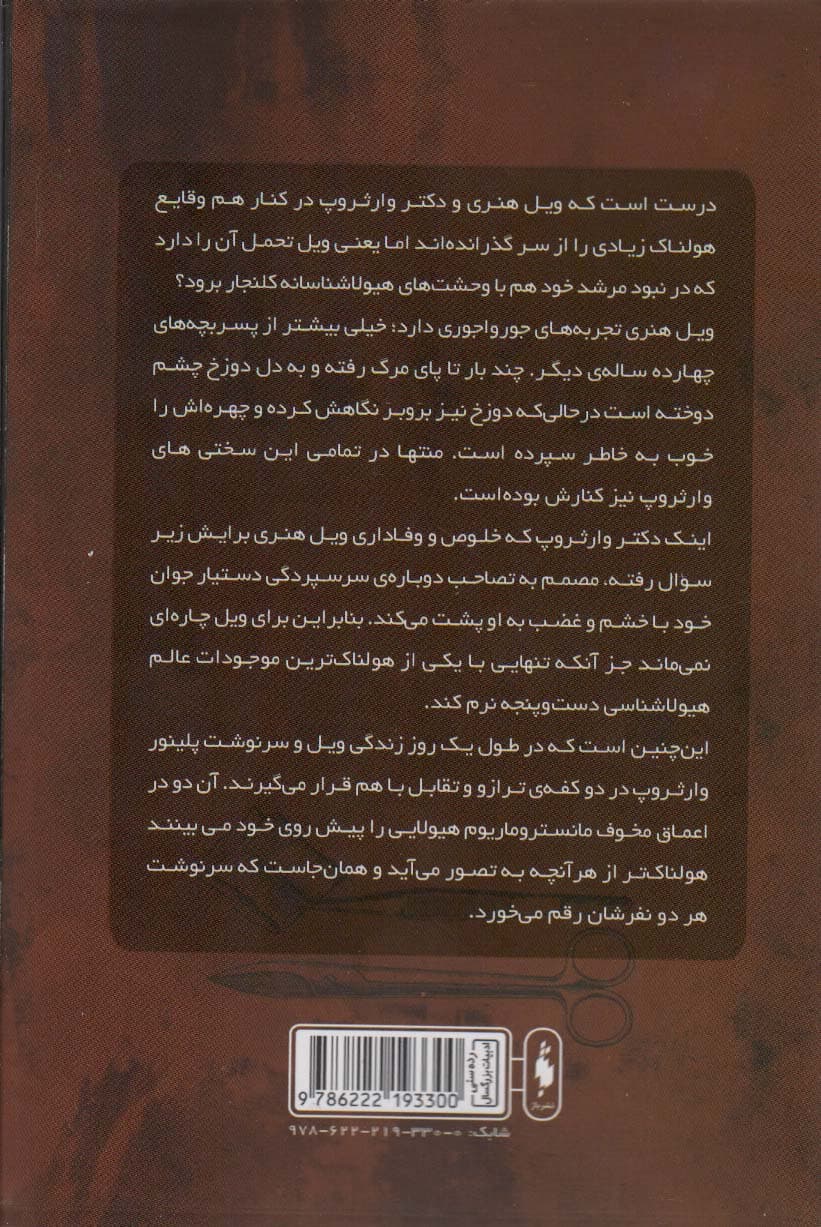 درست است که ویل هنری و دکتر وارثروپ در کنار هم وقایع
هولناک زیادی را از سر گذرانده‌اند اما یعنی ویل تحمل آن را دارد
که در نبود مرشد خود هم با وحشت‌های هیولاشناسانه کلنجار برود؟
ویل هنری تجربه‌های جورواجوری دارد؛ خیلی بیشتر از پسربچه‌های
چهارده ساله‌ی دیگر. چند بار تا پای مرگ رفته و به دل دوزخ چشم
دوخته است درحالی‌که دوزخ نیز بَروبَر نگاهش کرده و چهره‌اش را
خوب به خاطر سپرده است. منتها در تمامی این سختی های
وارثروپ نیز کنارش بوده‌است.
اینک دکتر وارثروپ که خلوص و وفاداری ویل هنری برایش زیر
سؤال رفته، مصمم به تصاحب دوباره‌ی سرسپردگی دستیار جوان
خود با خشم و غضب به او پشت می‌کند. بنابراین برای ویل چاره‌ای
نمی‌ماند جز آنکه تنهایی با یکی از هولناک‌ترین موجودات عالم
هیولاشناسی دست‌وپنجه نرم کند.
این‌چنین است که در طول یک روز زندگی ویل و سرنوشت پلینور
وارثروپ در دو کفه‌ی ترازو و تقابل با هم قرار می‌گیرند. آن دو در
اعماق مخوف مانستروماریوم هیولایی را پیش روی خود می بینند
هولناک‌تر از هرآنچه به تصور می‌آید و همان‌جاست که سرنوشت
هر دو نفرشان رقم می‌خورد.
رده سنی
ادبیات بزرگسال
نشر باژ
9 786222 193300
شابک: ۹۷۸-۶۲۲-۲۱۹-۳۳۰-۰